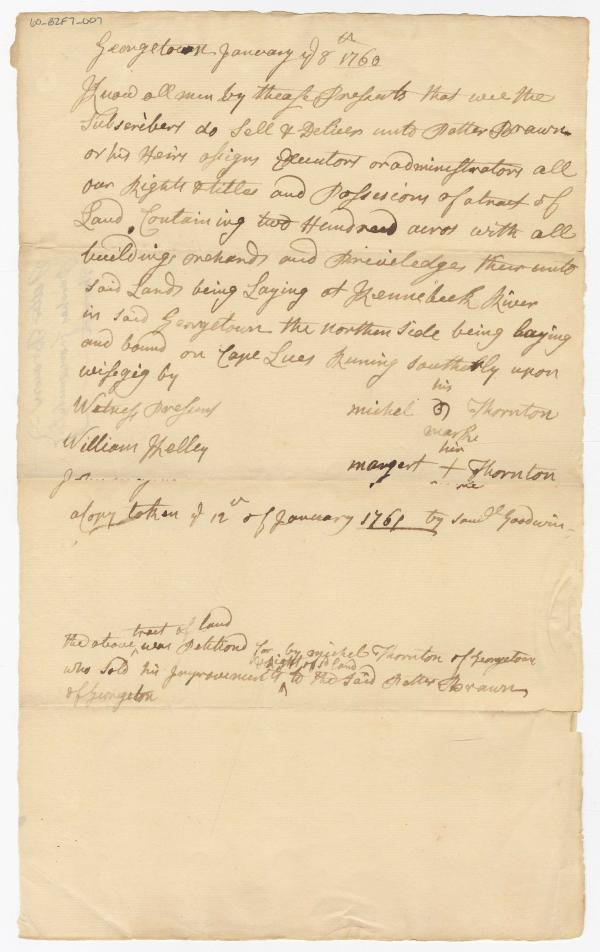 60-B2F7-007
Georgetown January ye 8th 1760
Know all men by thease Presents that wee the
Subscribers do Sell & Deliver unto Patter Brawn
or his Heirs asigns Executors or administrators all
our Rights & titles and Possesions of a tract of
Land, Containing two Hundread acros with all
buildings orchands and Priveledges their unto
said Lands being Laying at Kennebeck River
in said Georgetown the northen Side being laying
and bound on Cape Lues Runing southerly upon
wisgeig by
Witness Presents
his
michel Thornton
marke
William Kelley
her
margert + Thornton
a Copy taken ye 12th of January 1761 by Samll Goodwin
tract of land
the above was Petitiond for by michel Thornton of Georgetown
& Right of sd land
who sold his Improvements ^ to the said Patter Brawn
of Georgeton